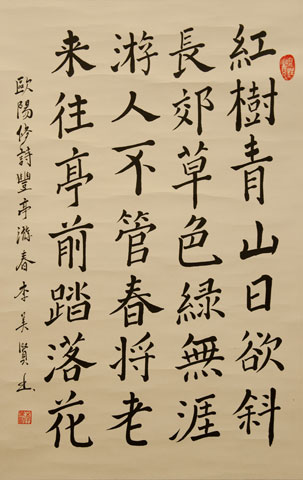 紅樹青山日欲斜
長郊草色綠無涯
游人不管春将老
来往亭前踏落花
歐陽修詩豐亭游春李美賢書